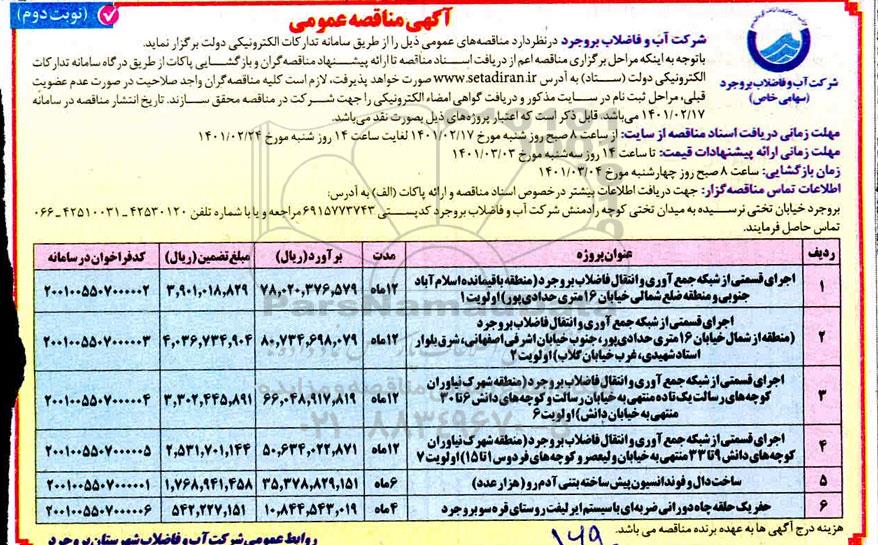 آگهی مناقصه عمومی
(نوبت دوم)
شرکت آب و فاضلاب بروجرد
(سهامی خاص)
شرکت آب و فاضلاب بروجرد در نظر دارد مناقصه‌های عمومی ذیل را از طریق سامانه تدارکات الکترونیکی دولت برگزار نماید.
باتوجه به اینکه مراحل برگزاری مناقصه اعم از دریافت اسناد مناقصه تا ارائه پیشنهاد مناقصه گران و بازگشایی پاکات از طریق درگاه سامانه تدارکات
الکترونیکی دولت (ستاد) به آدرس www.setadiran.ir صورت خواهد پذیرفت، لازم است کلیه مناقصه گران واجد صلاحیت در صورت عدم عضویت
قبلی، مراحل ثبت نام در سایت مذکور و دریافت گواهی امضاء الکترونیکی را جهت شرکت در مناقصه محقق سازند. تاریخ انتشار مناقصه در سامانه
۱۴۰۱/۰۲/۱۷ می‌باشد. قابل ذکر است که اعتبار پروژه‌های ذیل بصورت نقد می‌باشد.
مهلت زمانی دریافت اسناد مناقصه از سایت: از ساعت ۸ صبح روز شنبه مورخ ۱۴۰۱/۰۲/۱۷ لغایت ساعت ۱۴ روز شنبه مورخ ۱۴۰۱/۰۲/۲۴
مهلت زمانی ارائه پیشنهادات قیمت: تا ساعت ۱۴ روز سه‌شنبه مورخ ۱۴۰۱/۰۳/۰۳
زمان بازگشایی: ساعت ۸ صبح روز چهارشنبه مورخ ۱۴۰۱/۰۳/۰۴
اطلاعات تماس مناقصه‌گزار: جهت دریافت اطلاعات بیشتر درخصوص اسناد مناقصه و ارائه پاکات (الف) به آدرس:
بروجرد خیابان تختی نرسیده به میدان تختی کوچه رادمنش شرکت آب و فاضلاب بروجرد کدپستی ۶۹۱۵۷۷۳۷۴۳ مراجعه و یا با شماره تلفن ۴۲۵۳۰۱۲۰ ـ ۴۲۵۱۰۰۳۱ ـ ۰۶۶
تماس حاصل فرمایند.
ردیف عنوان پروژه مدت برآورد (ریال) مبلغ تضمین (ریال) کد فراخوان در سامانه
۱ اجرای قسمتی از شبکه جمع آوری و انتقال فاضلاب بروجرد (منطقه باقیمانده اسلام آباد
جنوبی و منطقه ضلع شمالی خیابان ۱۶ متری حدادی پور) اولویت ۱ ۱۲ ماه ۷۸,۰۲۰,۳۷۶,۵۷۹ ۳,۹۰۱,۰۱۸,۸۲۹ ۲۰۰۱۰۰۵۵۰۷۰۰۰۰۰۲
۲ اجرای قسمتی از شبکه جمع آوری و انتقال فاضلاب بروجرد
(منطقه از شمال خیابان ۱۶ متری حدادی پور، جنوب خیابان اشرفی اصفهانی، شرق بلوار
استاد شهیدی، غرب خیابان گلاب) اولویت ۲ ۱۲ ماه ۸۰,۷۳۴,۶۹۸,۰۷۹ ۴,۰۳۶,۷۳۴,۹۰۴ ۲۰۰۱۰۰۵۵۰۷۰۰۰۰۰۳
۳ اجرای قسمتی از شبکه جمع آوری و انتقال فاضلاب بروجرد (منطقه شهرک نیاوران
کوچه های رسالت یک تا ده منتهی به خیابان رسالت و کوچه های دانش ۶ تا ۳۰
منتهی به خیابان دانش) اولویت ۶ ۱۲ ماه ۶۶,۰۴۸,۹۱۷,۸۱۹ ۳,۳۰۲,۴۴۵,۸۹۱ ۲۰۰۱۰۰۵۵۰۷۰۰۰۰۰۴
۴ اجرای قسمتی از شبکه جمع آوری و انتقال فاضلاب بروجرد (منطقه شهرک نیاوران
کوچه های دانش ۹ تا ۳۳ منتهی به خیابان ولیعصر و کوچه های فردوس ۱ تا ۱۵) اولویت ۷ ۱۲ ماه ۵۰,۶۳۴,۰۲۲,۸۷۱ ۲,۵۳۱,۷۰۱,۱۴۴ ۲۰۰۱۰۰۵۵۰۷۰۰۰۰۰۵
۵ ساخت دال و فوندانسیون پیش ساخته بتنی آدم رو (هزار عدد) ۶ ماه ۳۵,۳۷۸,۸۲۹,۱۵۱ ۱,۷۶۸,۹۴۱,۴۵۸ ۲۰۰۱۰۰۵۵۰۷۰۰۰۰۰۱
۶ حفر یک حلقه چاه دورانی ضربه ای با سیستم ایرلیفت روستای قره سو بروجرد ۴ ماه ۱۰,۸۴۴,۵۴۳,۰۱۹ ۵۴۲,۲۲۷,۱۵۱ ۲۰۰۱۰۰۵۵۰۷۰۰۰۰۰۶
هزینه درج آگهی ها به عهده برنده مناقصه می باشد.
روابط عمومی شرکت آب و فاضلاب شهرستان بروجرد